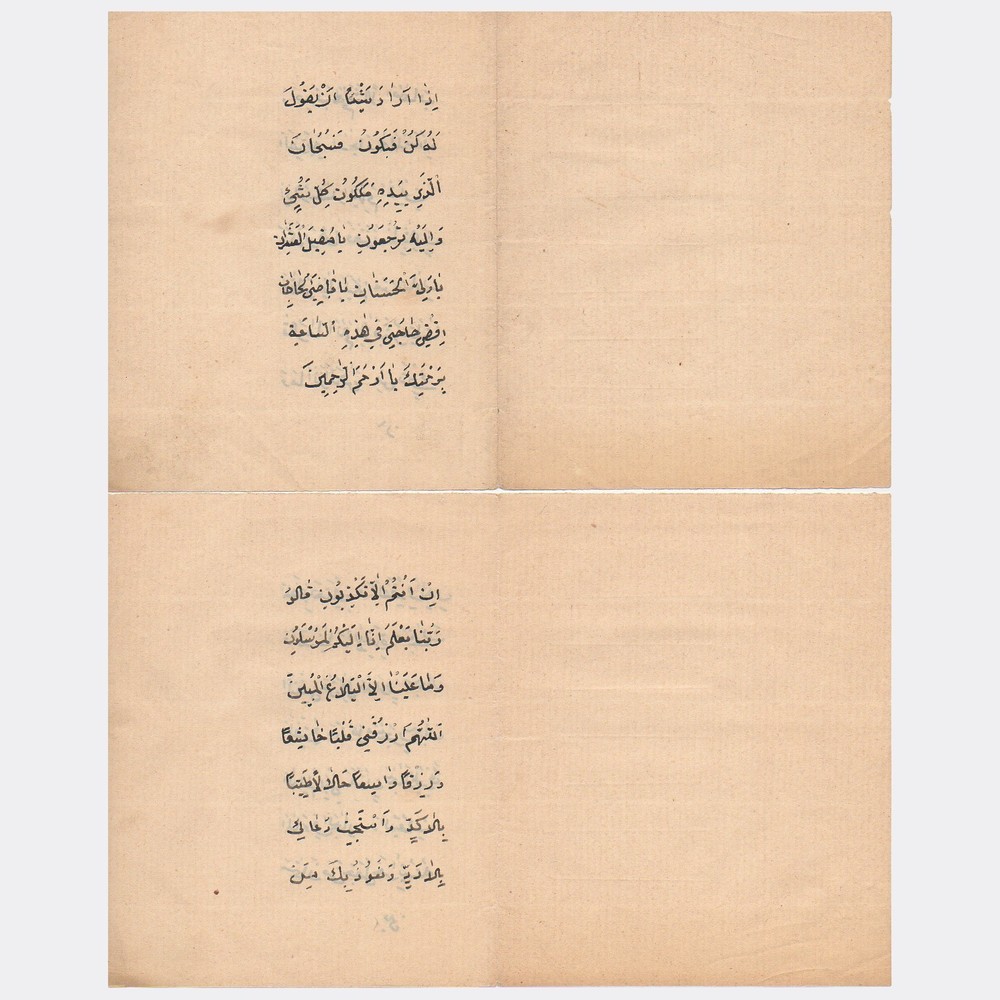 اِذٰا اَرٰادَ شَيْئاً اَنْ يَقُولَ
لَهُ كُنْ فَيَكُونُ فَسُبْحٰانَ
الَّذِي بِيَدِهِ مَلَكُوتُ كُلِّ شَيْءٍ
وَاِلَيْهِ تُرْجَعُونَ يٰا مُقِيلَ الْعَثَرٰاتِ
يٰا وَلِيَّ الْحَسَنٰاتِ يٰا قٰاضِيَ الْحٰاجٰاتِ
اِقْضِ حٰاجَتِي فِي هٰذِهِ السّٰاعَةِ
بِرَحْمَتِكَ يٰا اَرْحَمَ الرّٰاحِمِينَ
اِنْ اَنْتُمْ اِلّٰا تَكْذِبُونَ قٰالُو
رَبُّنٰا يَعْلَمُ اِنّٰا اِلَيْكُمْ لَمُرْسَلُونَ
وَمٰا عَلَيْنٰا اِلَّا الْبَلٰاغُ الْمُبِينُ
اَللّٰهُمَّ ارْزُقْنِي قَلْبًا خٰاشِعًا
وَرِزْقًا وٰاسِعًا حَلٰالًا طَيِّبًا
بِلٰا كَدٍّ وَاسْتَجِبْ دُعٰائِي
بِلٰا رَدٍّ وَنَعُوذُ بِكَ مِنَ